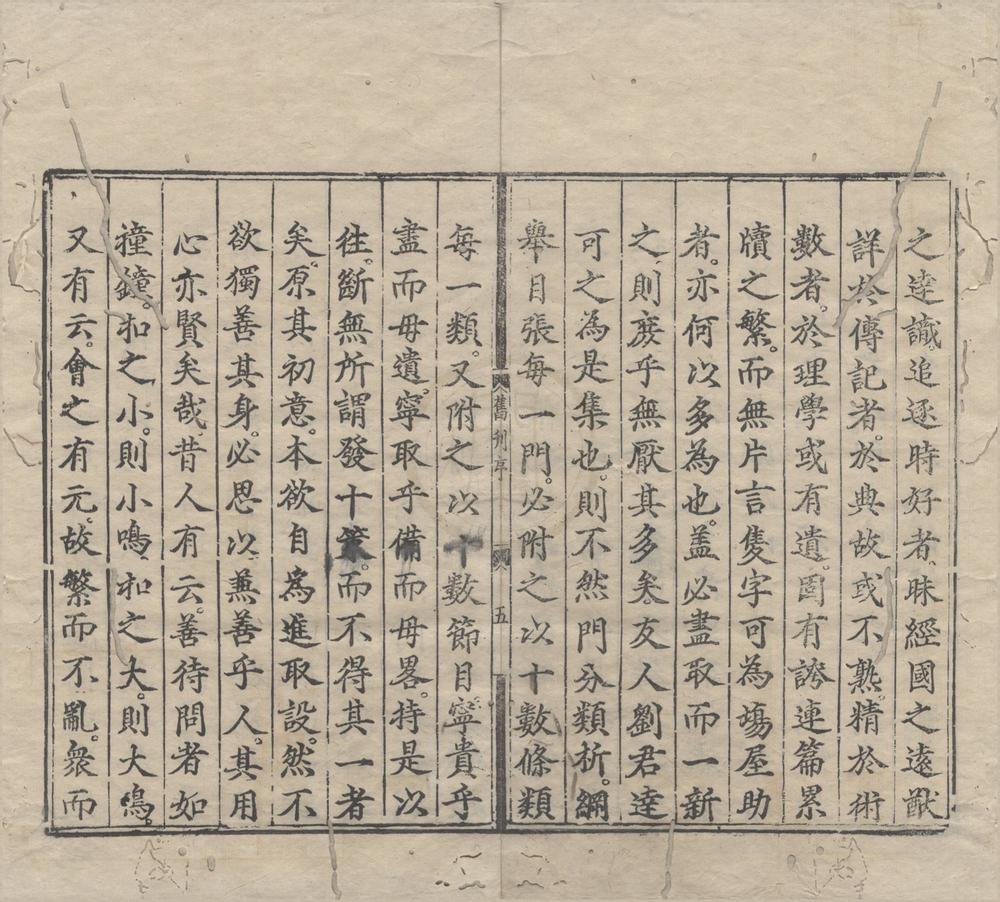 之達識。追逐時好者。昧經國之遠猷
詳於傳記者。於典故或不熟。精於術
數者。於理學或有遺。固有誇連篇累
牘之繁。而無片言隻字可為塲屋助
者。亦何以多為也。盖必盡取而一新
之。則庻乎無厭其多矣。友人劉君達
可之為是集也。則不然門分類析。綱
舉目張每一門。必附之以十數條類
舊刋序
五
每一類。又附之以十數節目。寧貴乎
盡而毋遺。寧取乎備而毋畧。持是以
徃。斷無所謂發十策。而不得其一者
矣。原其初意。本欲自為進取設。然不
欲獨善其身。必思以兼善乎人。其用
心亦賢矣哉。昔人有云。善待問者如
撞鐘。扣之小。則小鳴。扣之大。則大鳴。
又有云。會之有元。故繁而不亂。衆而